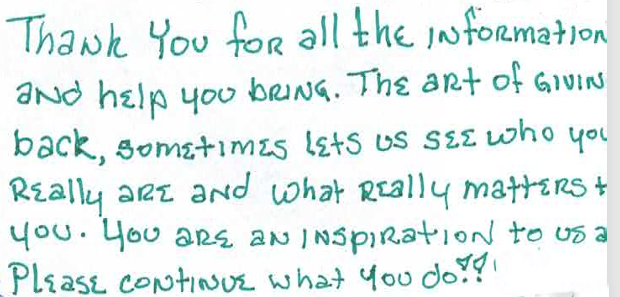 Thank You for all the information
and help you bring. The art of Givin
back, sometimes lets us see who you
Really are and what Really matters t
you. You are an inspiration to us a
Please continue what you do!!!